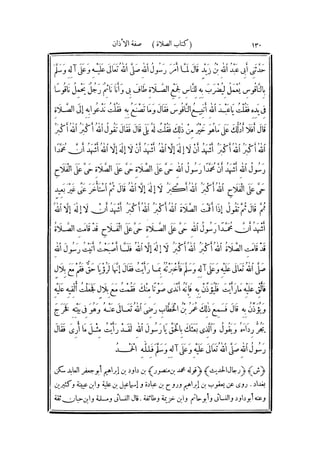 ١٣٠ (كتاب الصلاة) صفة الأذان
حَدَّثَنِى أَبِى عَبْدُ اللهِ بْنُ زَيْدٍ قَالَ لَمَّا أَمَرَ رَسُولُ اللهِ صَلَّى اللهُ تَعَالَى عَلَيْهِ وَعَلَى آلِهِ وَسَلَّمَ
بِالنَّاقُوسِ يُعْمَلُ لِيُضْرَبَ بِهِ لِلنَّاسِ لِجَمْعِ الصَّلَاةِ طَافَ بِى وَأَنَا نَائِمٌ رَجُلٌ يَحْمِلُ نَاقُوسًا
فِى يَدِهِ فَقُلْتُ يَاعَبْدَ اللهِ أَتَبِيعُ النَّاقُوسَ فَقَالَ وَمَا تَصْنَعُ بِهِ فَقُلْتُ نَدْعُو بِهِ إِلَى الصَّلَاةِ
قَالَ أَفَلَا أَدُلُّكَ عَلَى مَا هُوَ خَيْرٌ مِنْ ذَلِكَ فَقُلْتُ لَهُ بَلَى قَالَ فَقَالَ تَقُولُ اللهُ أَكْبَرُ اللهُ أَكْبَرُ
اللهُ أَكْبَرُ اللهُ أَكْبَرُ أَشْهَدُ أَنْ لَا إِلَهَ إِلَّا اللهُ أَشْهَدُ أَنْ لَا إِلَهَ إِلَّا اللهُ أَشْهَدُ أَنَّ مُحَمَّدًا
رَسُولُ اللهِ أَشْهَدُ أَنَّ مُحَمَّدًا رَسُولُ اللهِ حَىَّ عَلَى الصَّلَاةِ حَىَّ عَلَى الصَّلَاةِ حَىَّ عَلَى الْفَلَاحِ
حَىَّ عَلَى الْفَلَاحِ اللهُ أَكْبَرُ اللهُ أَكْبَرُ لَا إِلَهَ إِلَّا اللهُ قَالَ ثُمَّ اسْتَأْخَرَ عَنِّى غَيْرَ بَعِيدٍ
ثُمَّ قَالَ ثُمَّ تَقُولُ إِذَا أَقَمْتَ الصَّلَاةَ اللهُ أَكْبَرُ اللهُ أَكْبَرُ أَشْهَدُ أَنْ لَا إِلَهَ إِلَّا اللهُ
أَشْهَدُ أَنَّ مُحَمَّدًا رَسُولُ اللهِ حَىَّ عَلَى الصَّلَاةِ حَىَّ عَلَى الْفَلَاحِ قَدْ قَامَتِ الصَّلَاةُ
قَدْ قَامَتِ الصَّلَاةُ اللهُ أَكْبَرُ اللهُ أَكْبَرُ لَا إِلَهَ إِلَّا اللهُ فَلَمَّا أَصْبَحْتُ أَتَيْتُ رَسُولَ اللهِ
صَلَّى اللهُ تَعَالَى عَلَيْهِ وَعَلَى آلِهِ وَسَلَّمَ فَأَخْبَرْتُهُ بِمَا رَأَيْتُ فَقَالَ إِنَّهَا لَرُؤْيَا حَقٍّ فَقُمْ مَعَ بِلَالٍ
فَأَلْقِ عَلَيْهِ مَا رَأَيْتَ فَلْيُؤَذِّنْ بِهِ فَإِنَّهُ أَنْدَى صَوْتًا مِنْكَ فَقُمْتُ مَعَ بِلَالٍ فَجَعَلْتُ أُلْقِيهِ عَلَيْهِ
وَيُؤَذِّنُ بِهِ قَالَ فَسَمِعَ ذَلِكَ عُمَرُ بْنُ الْخَطَّابِ رَضِىَ اللهُ تَعَالَى عَنْهُ وَهُوَ فِى بَيْتِهِ فَخَرَجَ
يَجُرُّ رِدَاءَهُ وَيَقُولُ وَالَّذِى بَعَثَكَ بِالْحَقِّ يَا رَسُولَ اللهِ لَقَدْ رَأَيْتُ مِثْلَ مَا أُرِىَ فَقَالَ
رَسُولُ اللهِ صَلَّى اللهُ تَعَالَى عَلَيْهِ وَعَلَى آلِهِ وَسَلَّمَ فَلِلَّهِ الْحَمْدُ
(ش) (رجال الحديث) (قوله محمد بن منصور) بن داود بن إبراهيم أبو جعفر العابد سكن
بغداد. روى عن يعقوب بن إبراهيم وروح بن عبادة وإسماعيل بن علية وابن عيينة وكثيرين
وعنه أبوداود والنسائى وأبوحاتم وابن خزيمة وطائفة. قال النسائى ومسلمة وابن حبان ثقة